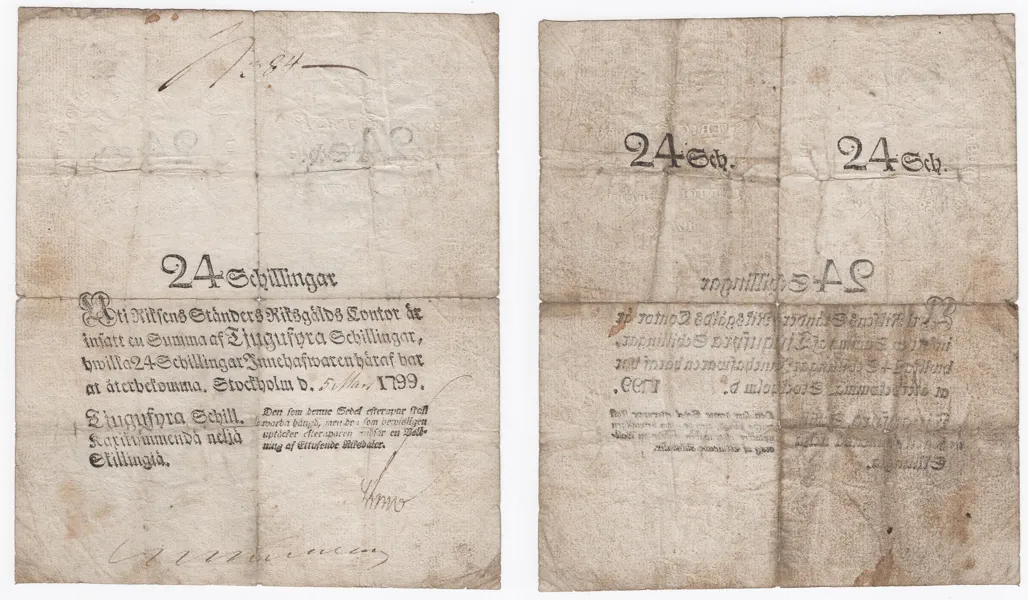 24 Schillingar
Uti Riksens Ständers Riksgälds Contor är
insatt en Summa af Tjugufyra Schillingar,
hwilka 24 Schillingar Innehafwaren häraf har
at återbekomma. Stockholm d. 5 Mars 1799.
Tjugufyra Schill.
Kaxikymmendä neljä
Skillingiä.
Den som denne Sedel efterapar skall
warda hängd, men den som bewisligen
uptäcker efteraparen undfår en Belö-
ning af Ettusende Riksdaler.
24 Sch. 24 Sch.